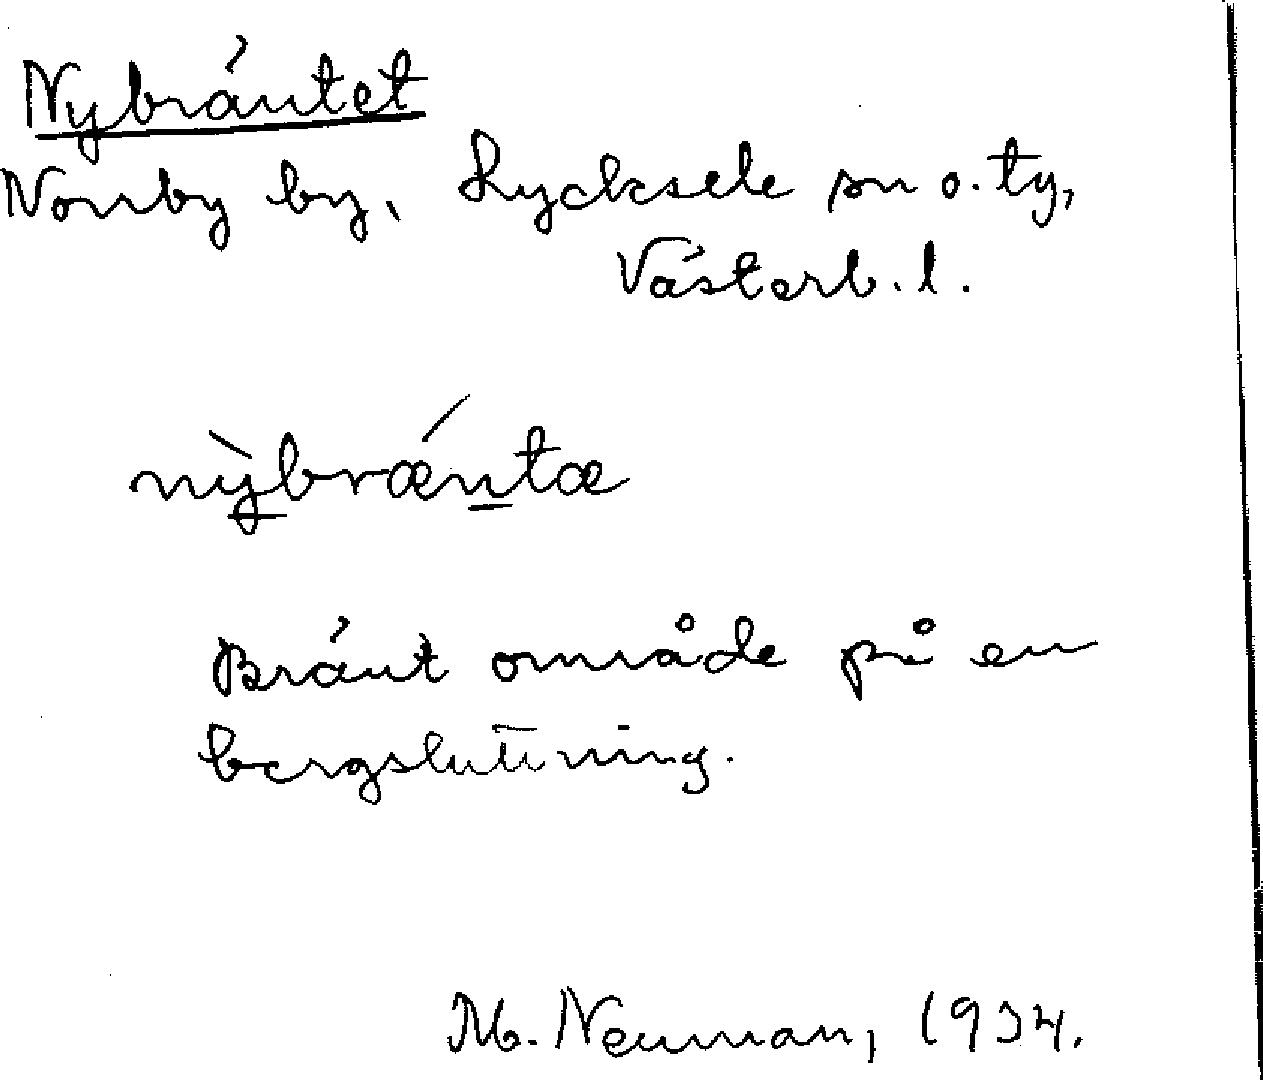 Nybräntet
Norrby by, Lycksele sn o. ty,
Västerb. l.
nỳbræ´ntæ
Bränt område på en
bergsluttning.
M. Neuman, 1934.